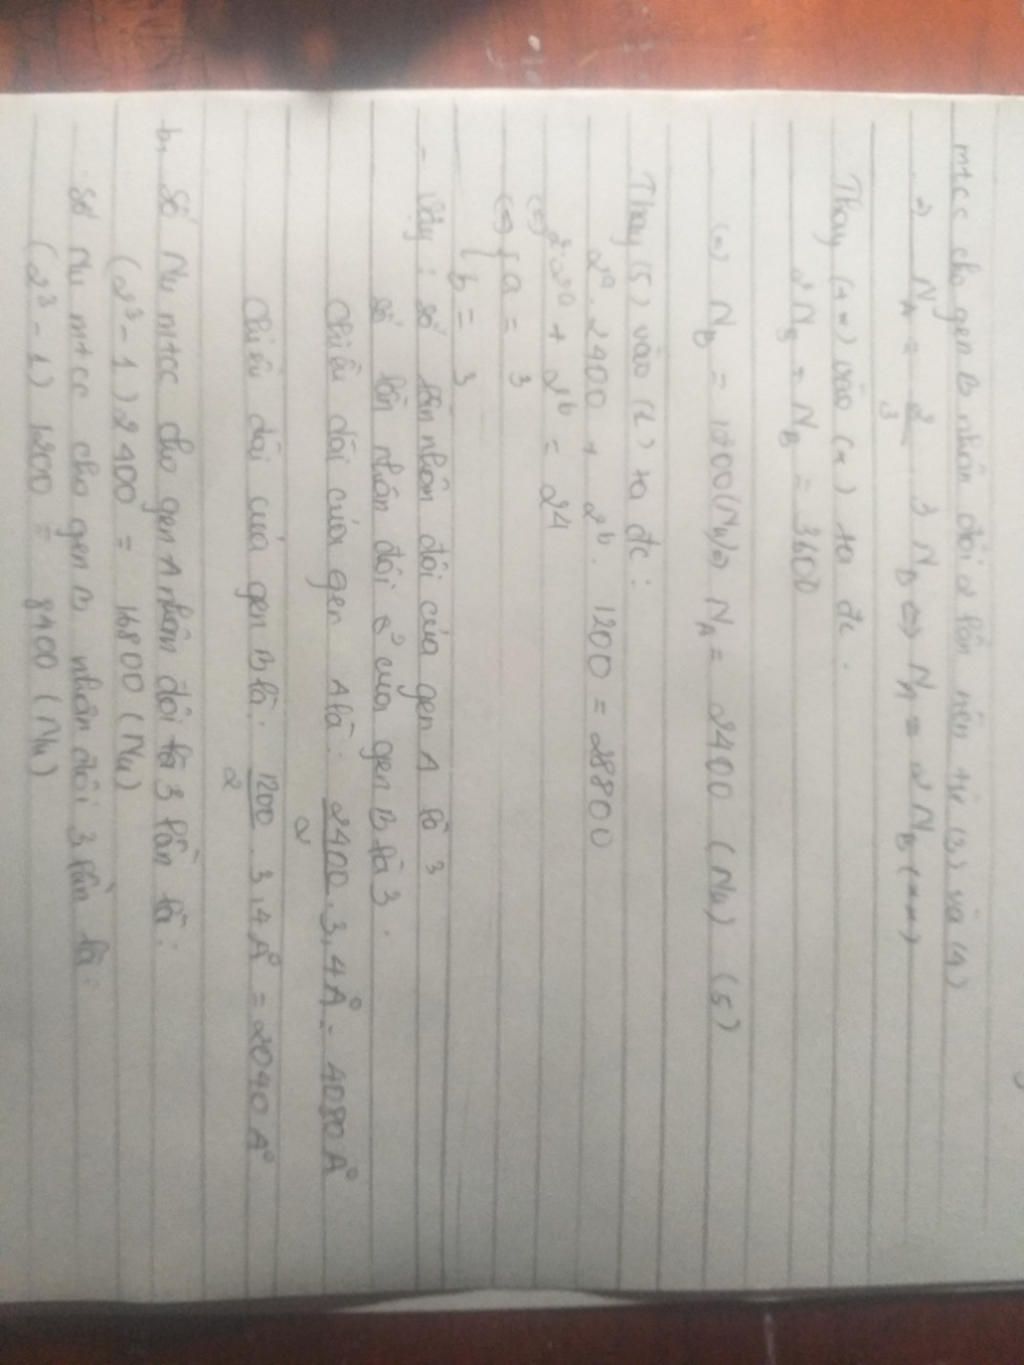 mtcc cho gen B nhân đôi 2 lần nên từ (3) và (4)
=) NA = 2/3 3 NB <=> NA = 2 NB (**)
Thay (**) vào (*) ta đc.
2NB + NB = 3600
(=) NB = 1200(Nu) => NA = 2400 (Nu) (5)
Thay (5) vào (2) ta đc:
2^a. 2400 + 2^b. 1200 = 28800
(=) 2.2^a + 2^b = 24
(=) { a = 3
{ b = 3
- Vậy: số lần nhân đôi của gen A là 3
số lần nhân đôi của gen B là 3.
Chiều dài của gen A là: 2400/2 . 3,4A° = 4080A°
Chiều dài của gen B là: 1200/2 . 3,4A° = 2040A°
b, Số Nu mtcc cho gen A nhân đôi là 3 lần là:
(2^3 - 1) 2400 = 16800 (Nu)
Số Nu mtcc cho gen B nhân đôi 3 lần là:
(2^3 - 1) 1200 = 8400 (Nu)